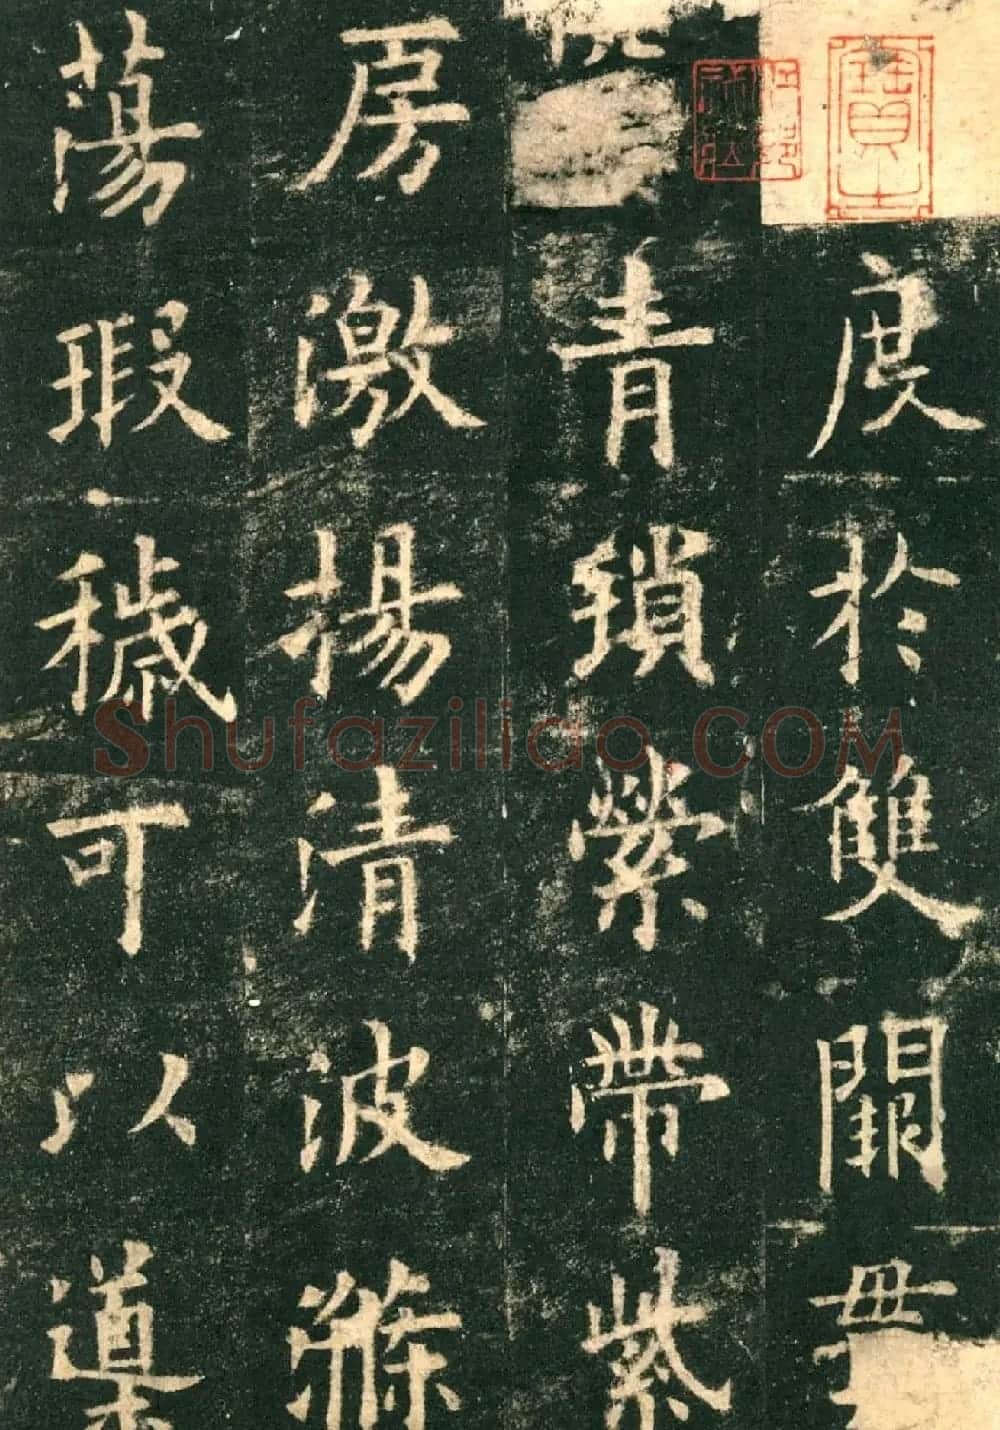 度於雙闕貫
青瑣縈帶紫
房激揚清波滌
蕩瑕穢可以導
Shufaziliao.COM